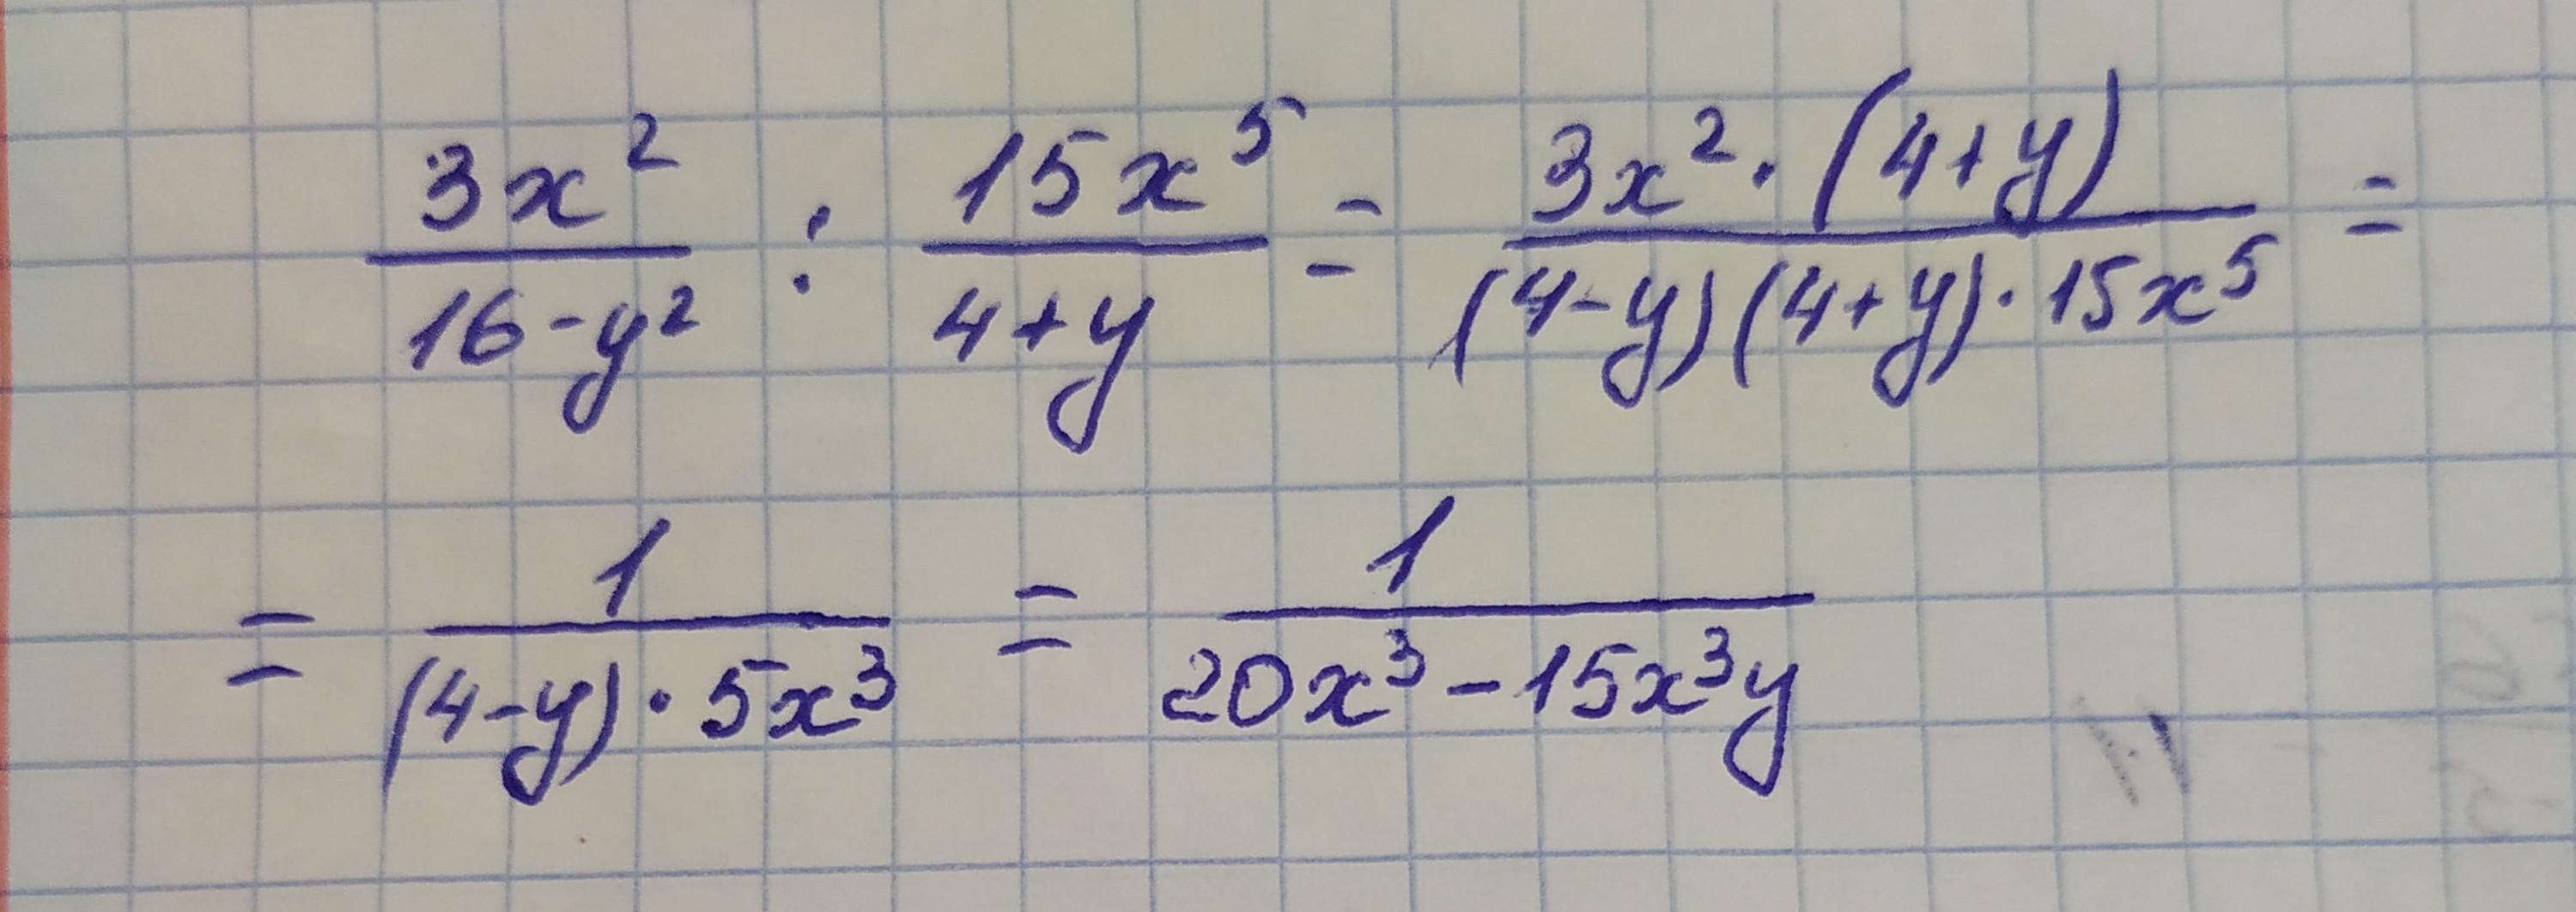 3x²/(16-y²) : 15x⁵/(4+y) = 3x²·(4+y)/((4-y)(4+y)·15x⁵) =
= 1/((4-y)·5x³) = 1/(20x³-15x³y)